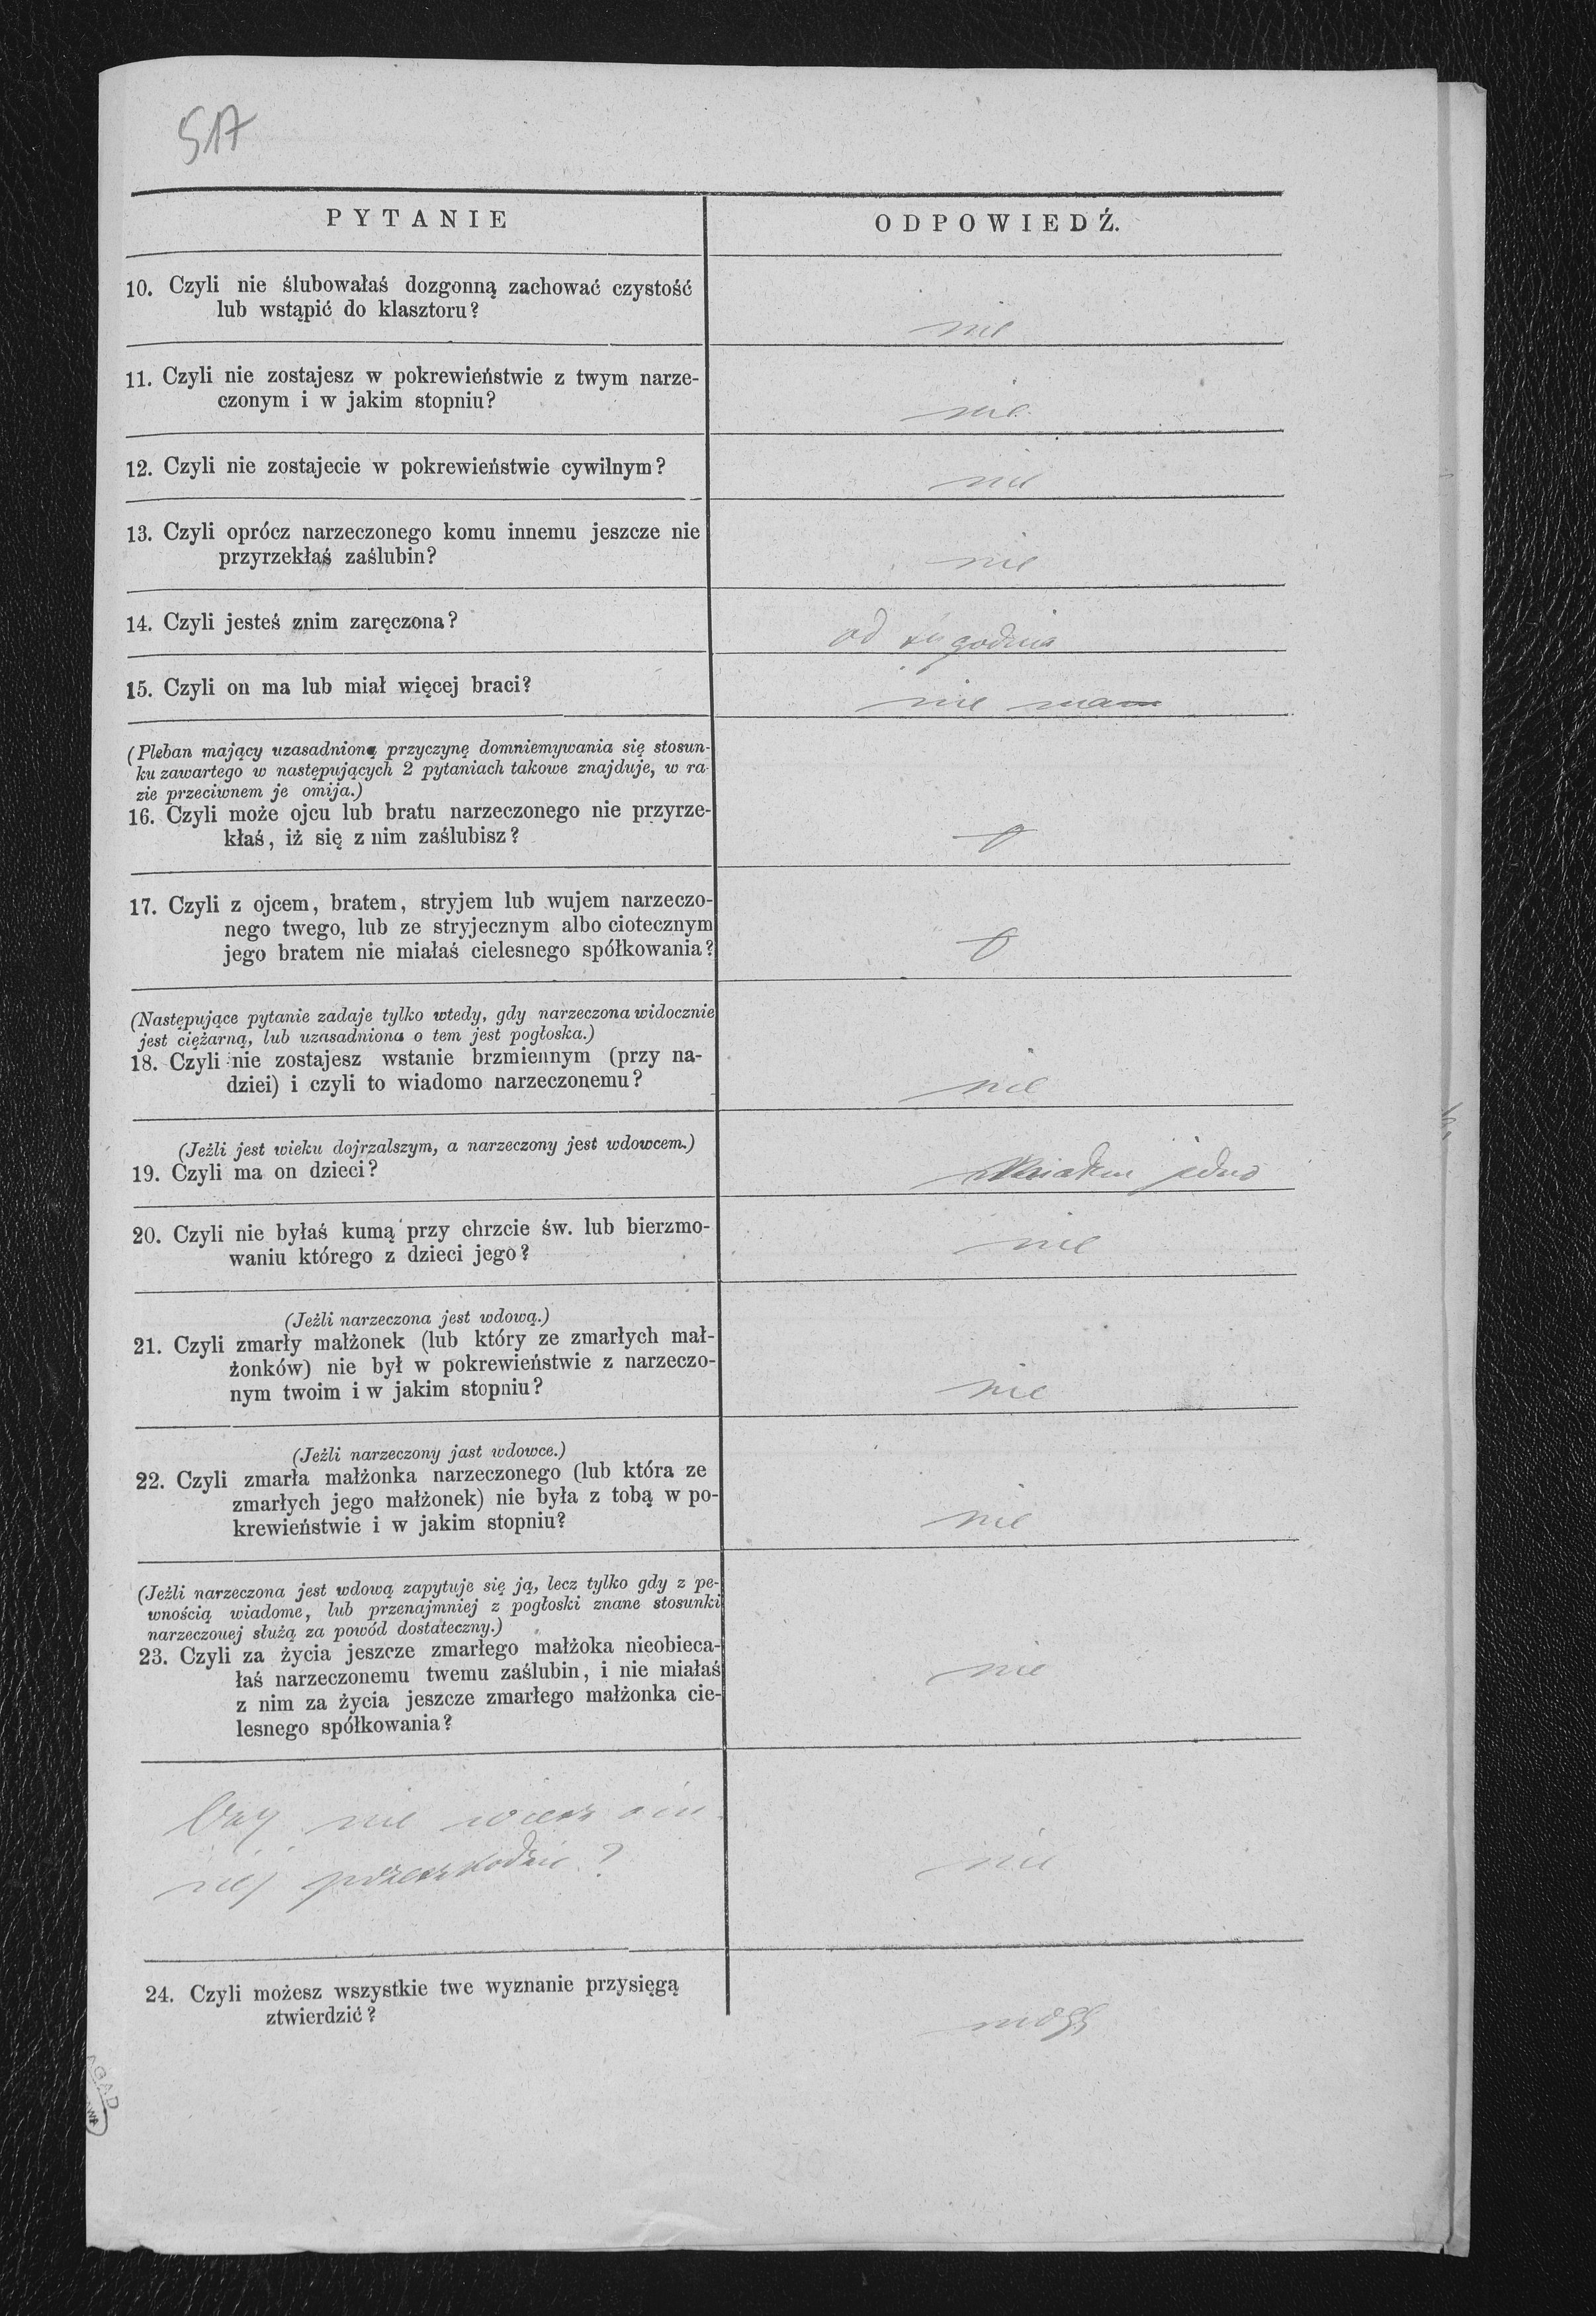 517
PYTANIE
ODPOWIEDŹ.
10. Czyli nie ślubowałaś dozgonną zachować czystość
lub wstąpić do klasztoru?
nie
11. Czyli nie zostajesz w pokrewieństwie z twym narze-
czonym i w jakim stopniu?
nie
12. Czyli nie zostajecie w pokrewieństwie cywilnym?
nie
13. Czyli oprócz narzeczonego komu innemu jeszcze nie
przyrzekłaś zaślubin?
nie
14. Czyli jesteś znim zaręczona?
od
15. Czyli on ma lub miał więcej braci?
nie
(Pleban mający uzasadnioną przyczynę domniemywania się stosun-
ku zawartego w następujących 2 pytaniach takowe znajduje, w ra-
zie przeciwnem je omija.)
16. Czyli może ojcu lub bratu narzeczonego nie przyrze-
kłaś, iż się z nim zaślubisz?
17. Czyli z ojcem, bratem, stryjem lub wujem narzeczo-
nego twego, lub ze stryjecznym albo ciotecznym
jego bratem nie miałaś cielesnego spółkowania?
(Następujące pytanie zadaje tylko wtedy, gdy narzeczona widocznie
jest ciężarną, lub uzasadniona o tem jest pogłoska.)
18. Czyli nie zostajesz wstanie brzmiennym (przy na-
dziei) i czyli to wiadomo narzeczonemu?
nie
(Jeżli jest wieku dojrzalszym, a narzeczony jest wdowcem.)
19. Czyli ma on dzieci?
jedno
20. Czyli nie byłaś kumą przy chrzcie św. lub bierzmo-
waniu którego z dzieci jego?
nie
(Jeżli narzeczona jest wdową.)
21. Czyli zmarły małżonek (lub który ze zmarłych mał-
żonków) nie był w pokrewieństwie z narzeczo-
nym twoim i w jakim stopniu?
nie
(Jeżli narzeczony jast wdowce.)
22. Czyli zmarła małżonka narzeczonego (lub która ze
zmarłych jego małżonek) nie była z tobą w po-
krewieństwie i w jakim stopniu?
nie
(Jeżli narzeczona jest wdową zapytuje się ją, lecz tylko gdy z pe-
wnością wiadome, lub przenajmniej z pogłoski znane stosunki
narzeczouej służą za powód dostateczny.)
23. Czyli za życia jeszcze zmarłego małżoka nieobieca-
łaś narzeczonemu twemu zaślubin, i nie miałaś
z nim za życia jeszcze zmarłego małżonka cie-
lesnego spółkowania?
nie
Czy nie wiesz o in
nej przeszkodzie?
nie
24. Czyli możesz wszystkie twe wyznanie przysięgą
ztwierdzić?
mogę
AGAD